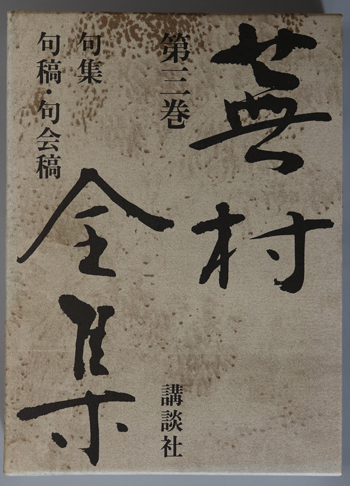 蕪村
全集
第三巻
句集
句稿・句会稿
講談社